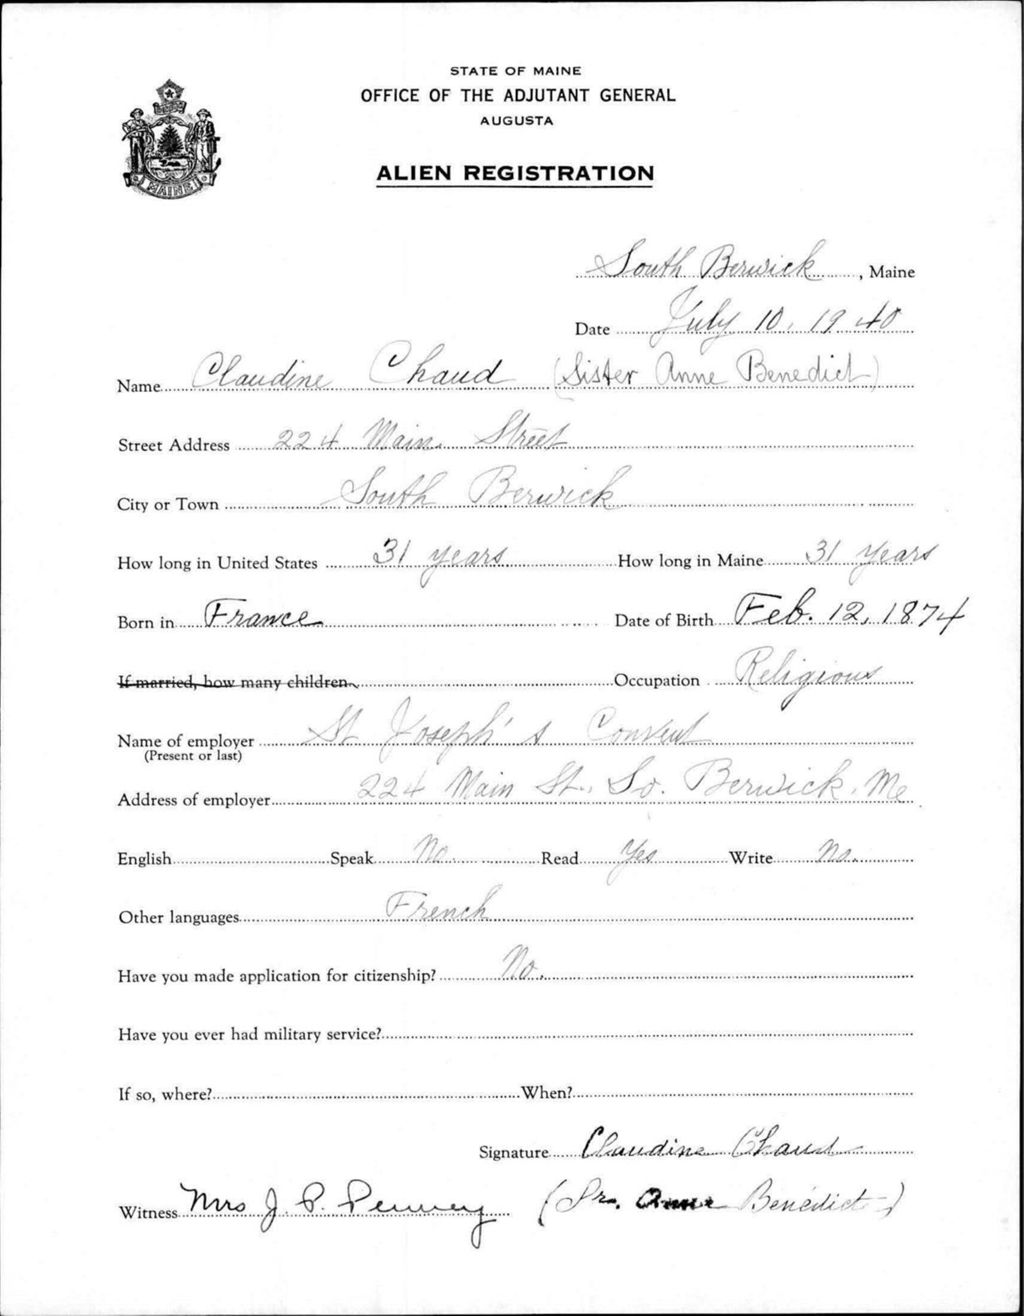 STATE OF MAINE
OFFICE OF THE ADJUTANT GENERAL
AUGUSTA
MAINE
ALIEN REGISTRATION
South Berwick, Maine
Date July 10, 1940
Name Claudine Chaud (Sister Anne Benedict)
Street Address 224 Main Street
City or Town South Berwick
How long in United States 31 years How long in Maine 31 years
Born in France Date of Birth Feb. 12, 1874
If married, how many children Occupation Religious
Name of employer St Joseph's Convent
(Present or last)
Address of employer 224 Main St., So. Berwick, Me
English Speak No. Read Yes Write No.
Other languages French
Have you made application for citizenship? No.
Have you ever had military service?
If so, where? When?
Signature Claudine Chaud
Witness Mrs J. P. Penney (Sr. Anne Benedict)